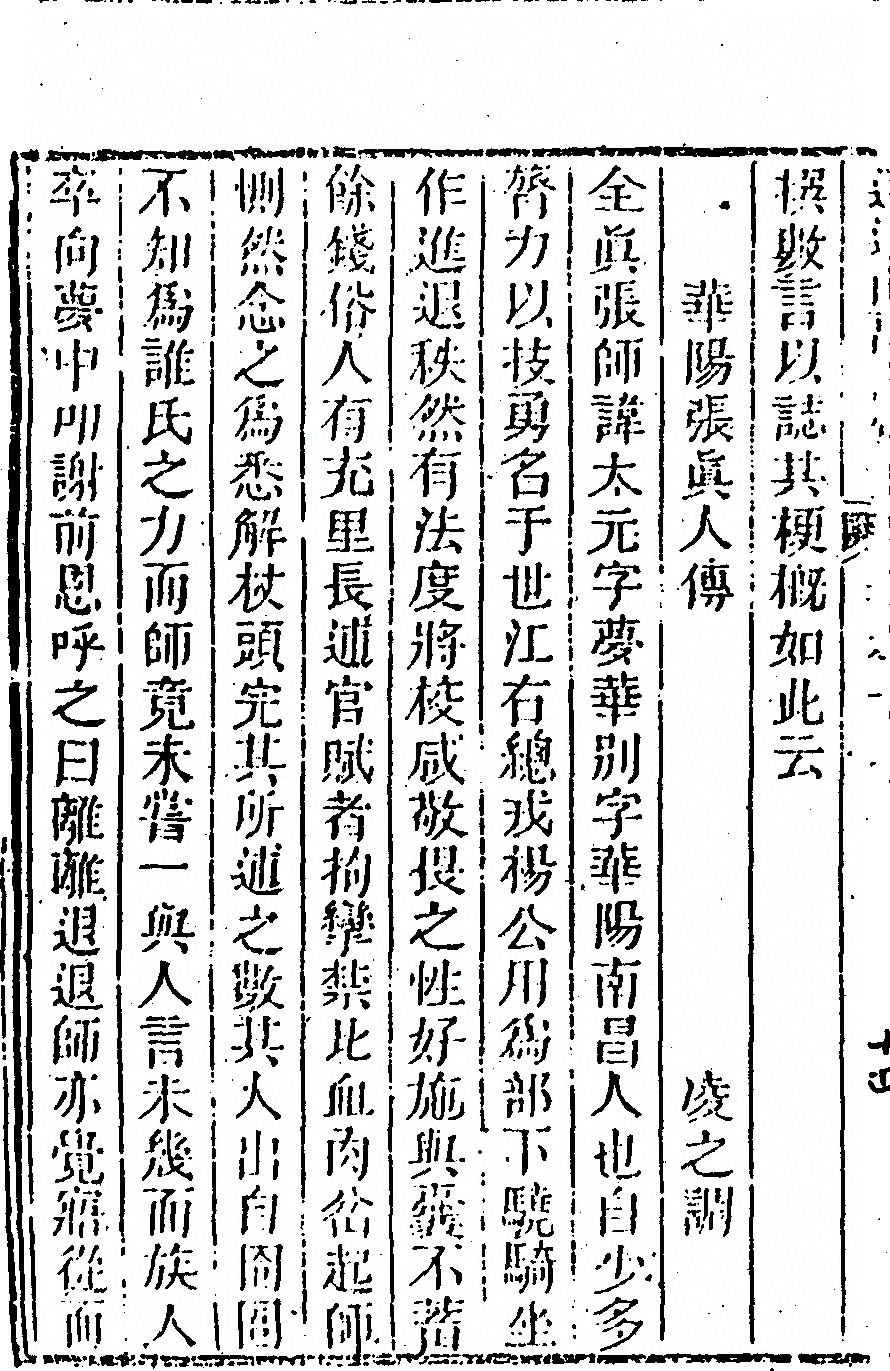 撰數言以誌其梗槪如此云
華陽張眞人傳 凌之調
全眞張師諱太元字夢華別字華陽南昌人也自少多
膂力以技勇名于世江右總戎楊公用爲部下驍騎坐
作進退秩然有法度將校咸敬畏之性好施與囊不蓄
餘錢俗人有充里長逋官賦者拘攣禁比血肉岔起師
惻然念之爲悉解杖頭完其所逋之數其人出自囹圄
不知爲誰氏之力而師竟未嘗一與人言未幾而族人
卒向夢中叩謝前恩呼之曰離離退退師亦覺寤從而